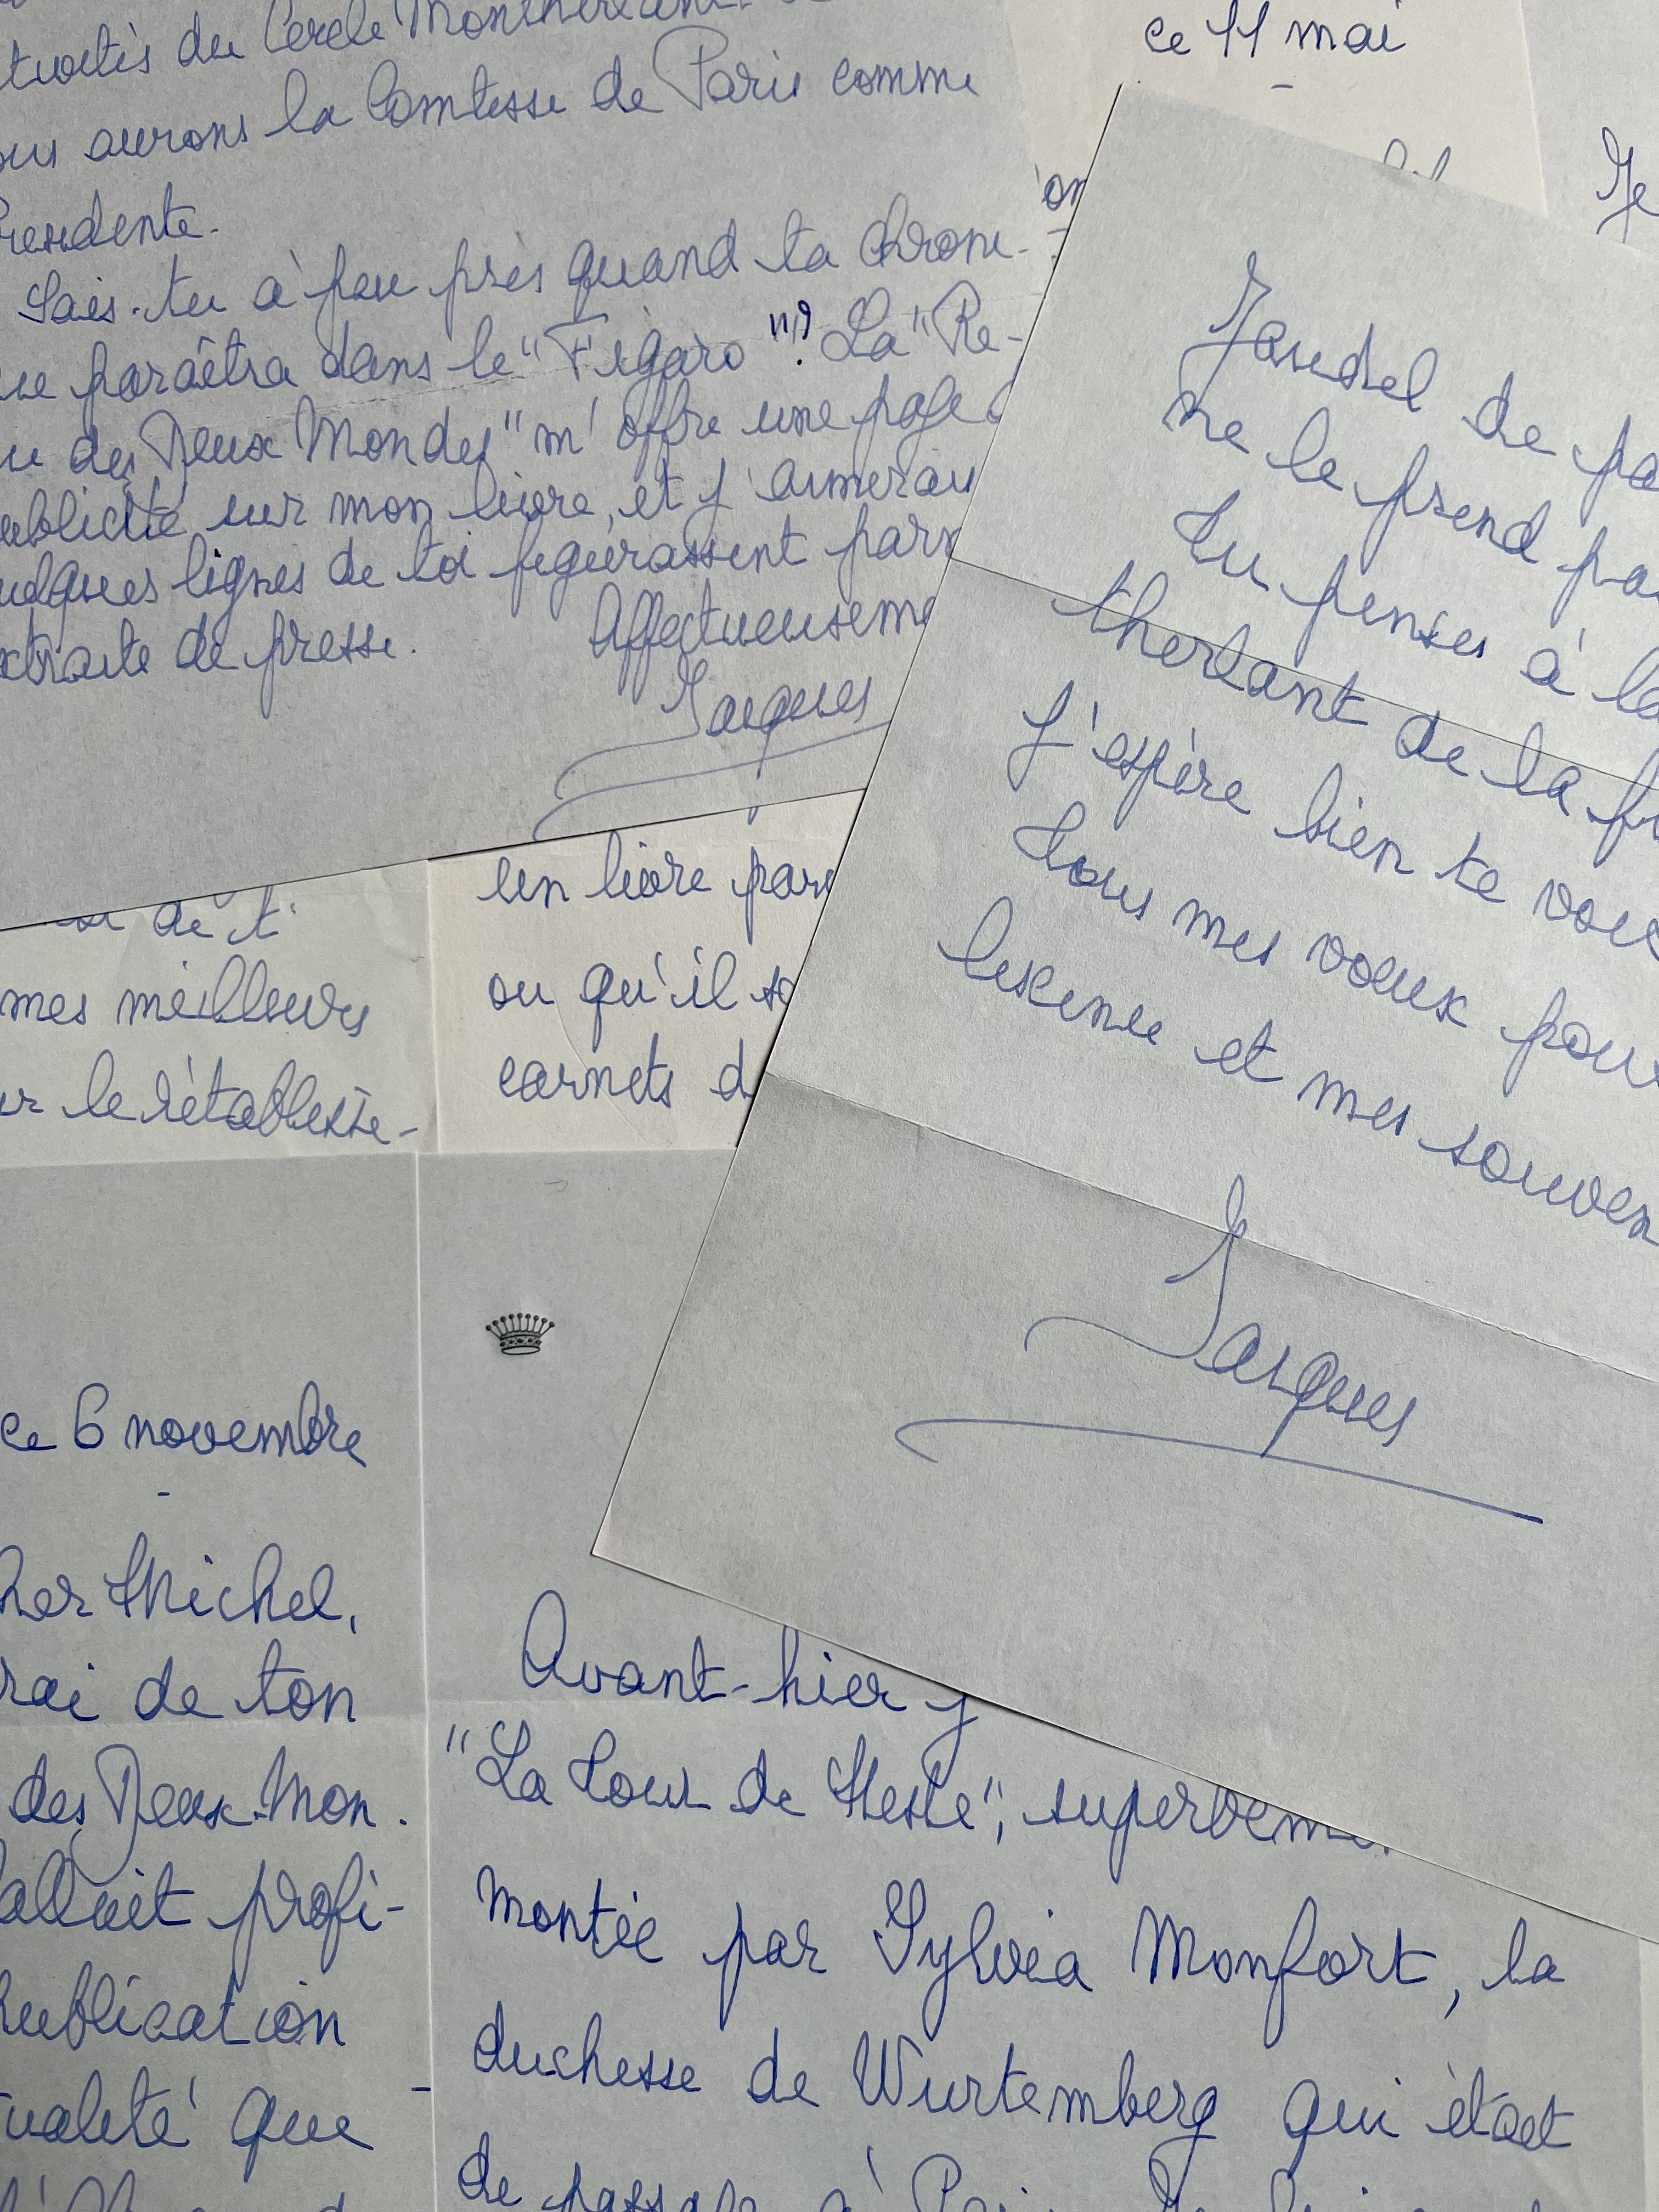 du Cercle
ous aurons la Comtesse de Paris comme
résidente.
Sais-tu à peu près quand ta chroni-
que paraîtra dans le "Figaro"? La "Re-
ue des Deux Mondes" m'offre une page
ublicité sur mon livre, et j'aimerais
uelques lignes de toi figurassent parm
xtraits de presse.
Affectueuseme
Jacques
ce 11 mai
Je
on
de pa
ne le prend pa
tu penses à la
therlant de la
J'espère bien te voir
Tous mes voeux pour
lescence et mes souven
Jacques
de t
mes meilleurs
ur le rétablisse-
un livre par
ou qu'il s
carnets d
ce 6 novembre
-
her Michel,
rai de ton
des Deux-Mon-
allait profi-
ublication
ualité que
Avant-hier j
"La Tour de Nesle", superbeme
montée par Sylvia Monfort, la
duchesse de Wurtemberg qui était
de passage à